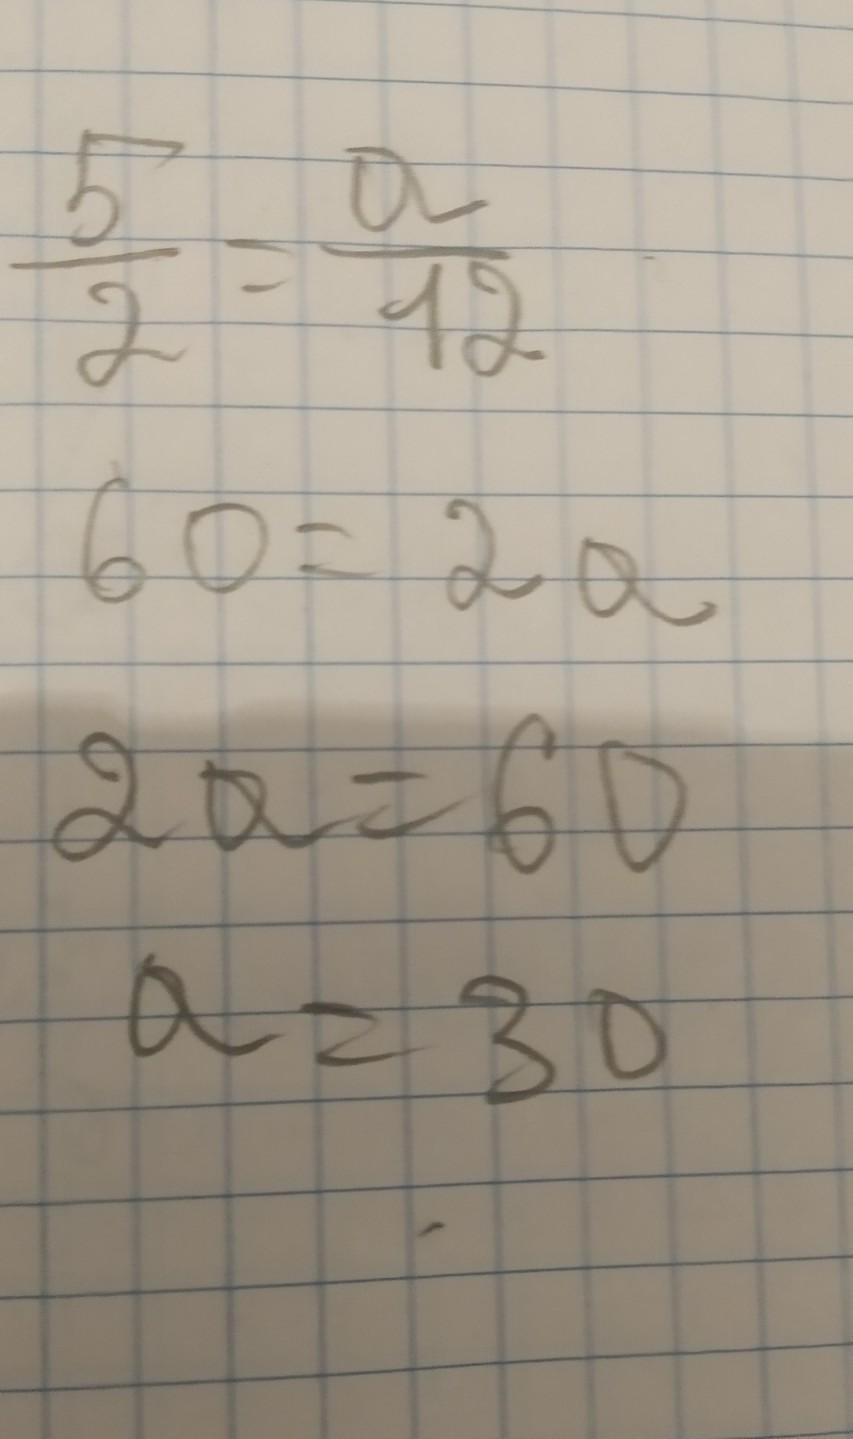 5/2 = a/12
60 = 2a
2a = 60
a = 30